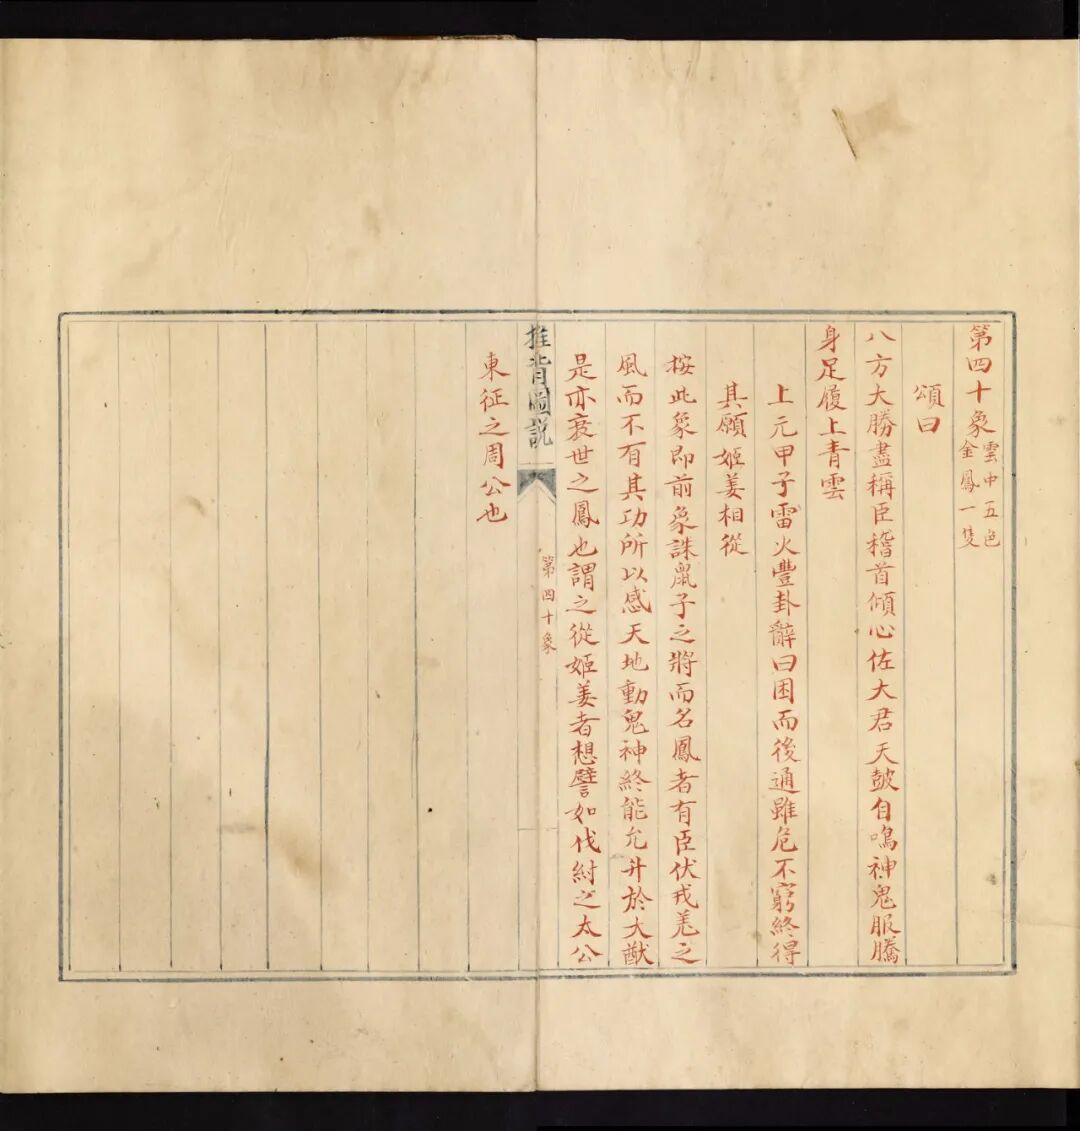 第四十象
雲中五色
金鳳一隻
頌曰
八方大勝盡稱臣稽首傾心佐大君天皷自鳴神鬼服騰
身足履上青雲
上元甲子雷火豐卦辭曰困而後通雖危不窮終得
其願姬姜相從
按此象即前象誅鼠子之將而名鳳者有臣伏戎羌之
風而不有其功所以感天地動鬼神終能允升於大猷
是亦衰世之鳳也謂之從姬姜者想譬如伐紂之太公
推背圖說
第四十象
東征之周公也